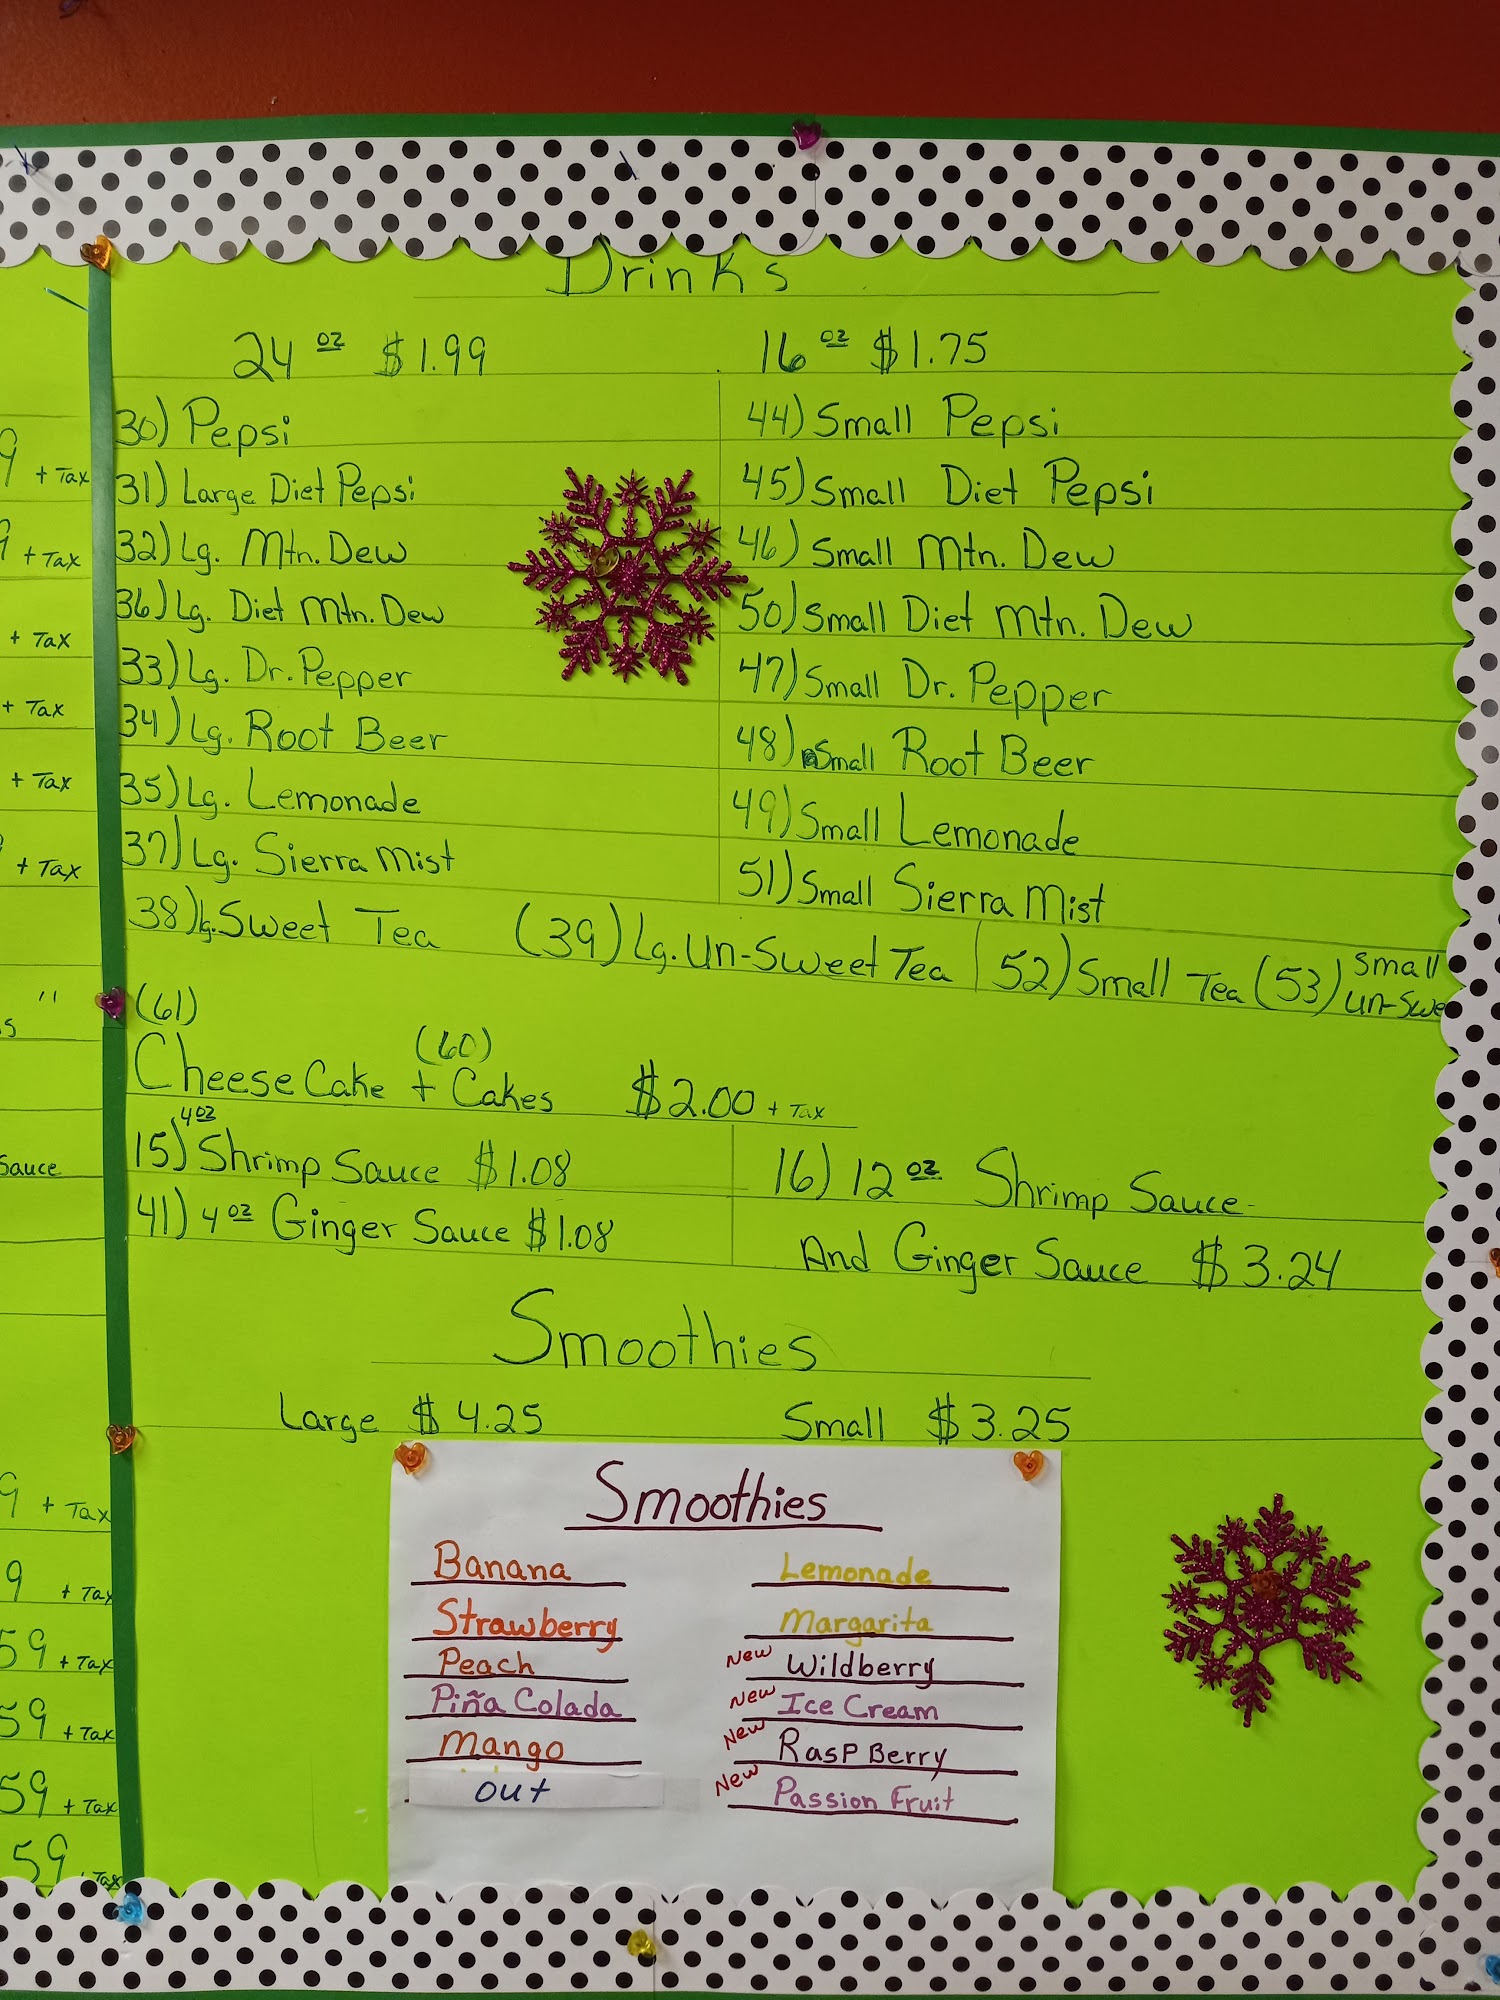 Drinks
24 oz $1.99
16 oz $1.75
30) Pepsi
31) Large Diet Pepsi
32) Lg. Mtn. Dew
36) Lg. Diet Mtn. Dew
33) Lg. Dr. Pepper
34) Lg. Root Beer
35) Lg. Lemonade
37) Lg. Sierra Mist
44) Small Pepsi
45) Small Diet Pepsi
46) Small Mtn. Dew
50) Small Diet Mtn. Dew
47) Small Dr. Pepper
48) Small Root Beer
49) Small Lemonade
51) Small Sierra Mist
38) lg. Sweet Tea (39) Lg. Un-Sweet Tea
52) Small Tea (53) Small
Un-Swe
(61)
(60)
Cheese Cake + Cakes $2.00 + Tax
15) 4oz Shrimp Sauce $1.08
41) 4 oz Ginger Sauce $1.08
16) 12 oz Shrimp Sauce
And Ginger Sauce $3.24
Smoothies
Large $4.25
Small $3.25
Smoothies
Banana
Strawberry
Peach
Piña Colada
Mango
out
Lemonade
Margarita
New Wildberry
New Ice Cream
New RasP Berry
New Passion Fruit
9 + Tax
9 + Tax
+ Tax
+ Tax
+ Tax
+ Tax
"
s
Sauce
9 + Tax
9 + Tax
59 + Tax
59 + Tax
59 + Tax
59 + Tax